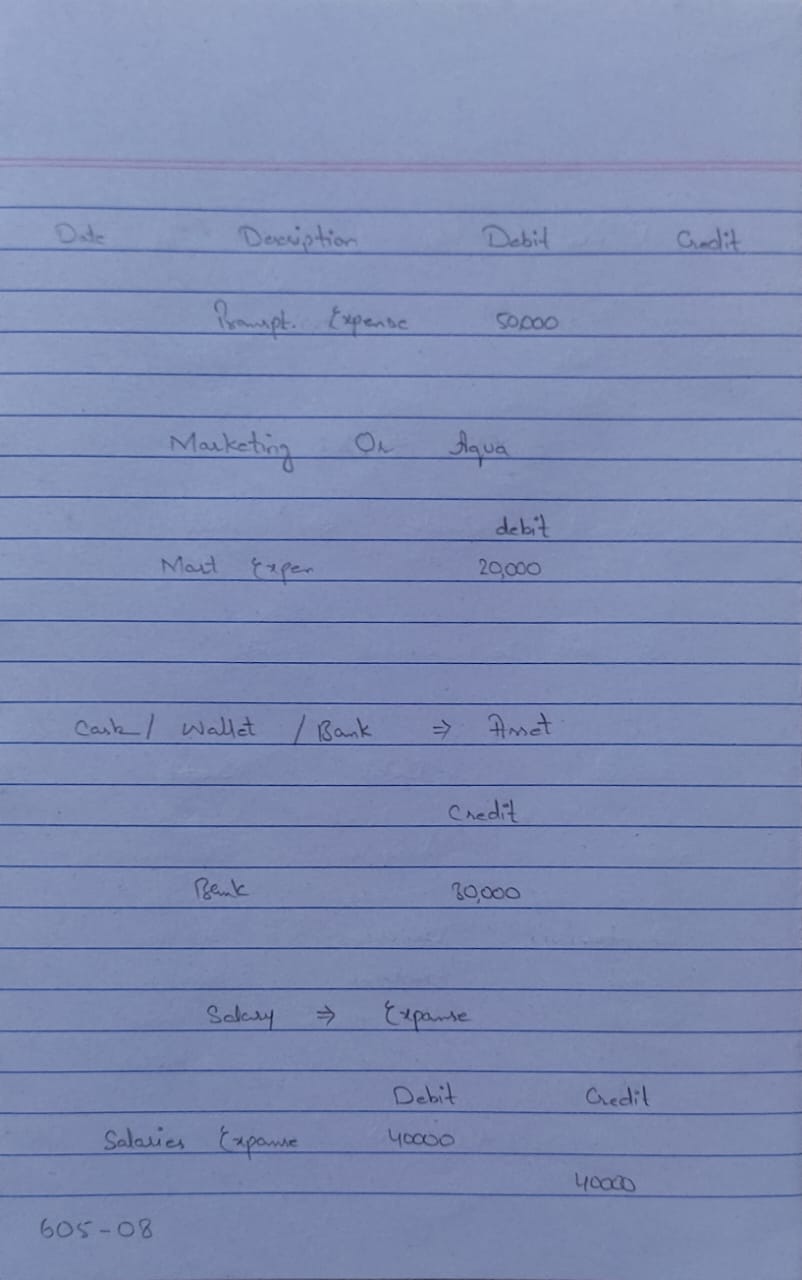 Date Description Debit Credit
Prompt. Expense 50,000
Marketing Or Aqua
debit
Mart Expen 20,000
Cash / Wallet / Bank ⇒ Asset
Credit
Bank 30,000
Salary ⇒ Expanse
Debit Credit
Salaries Expanse 40000
40000
605-08